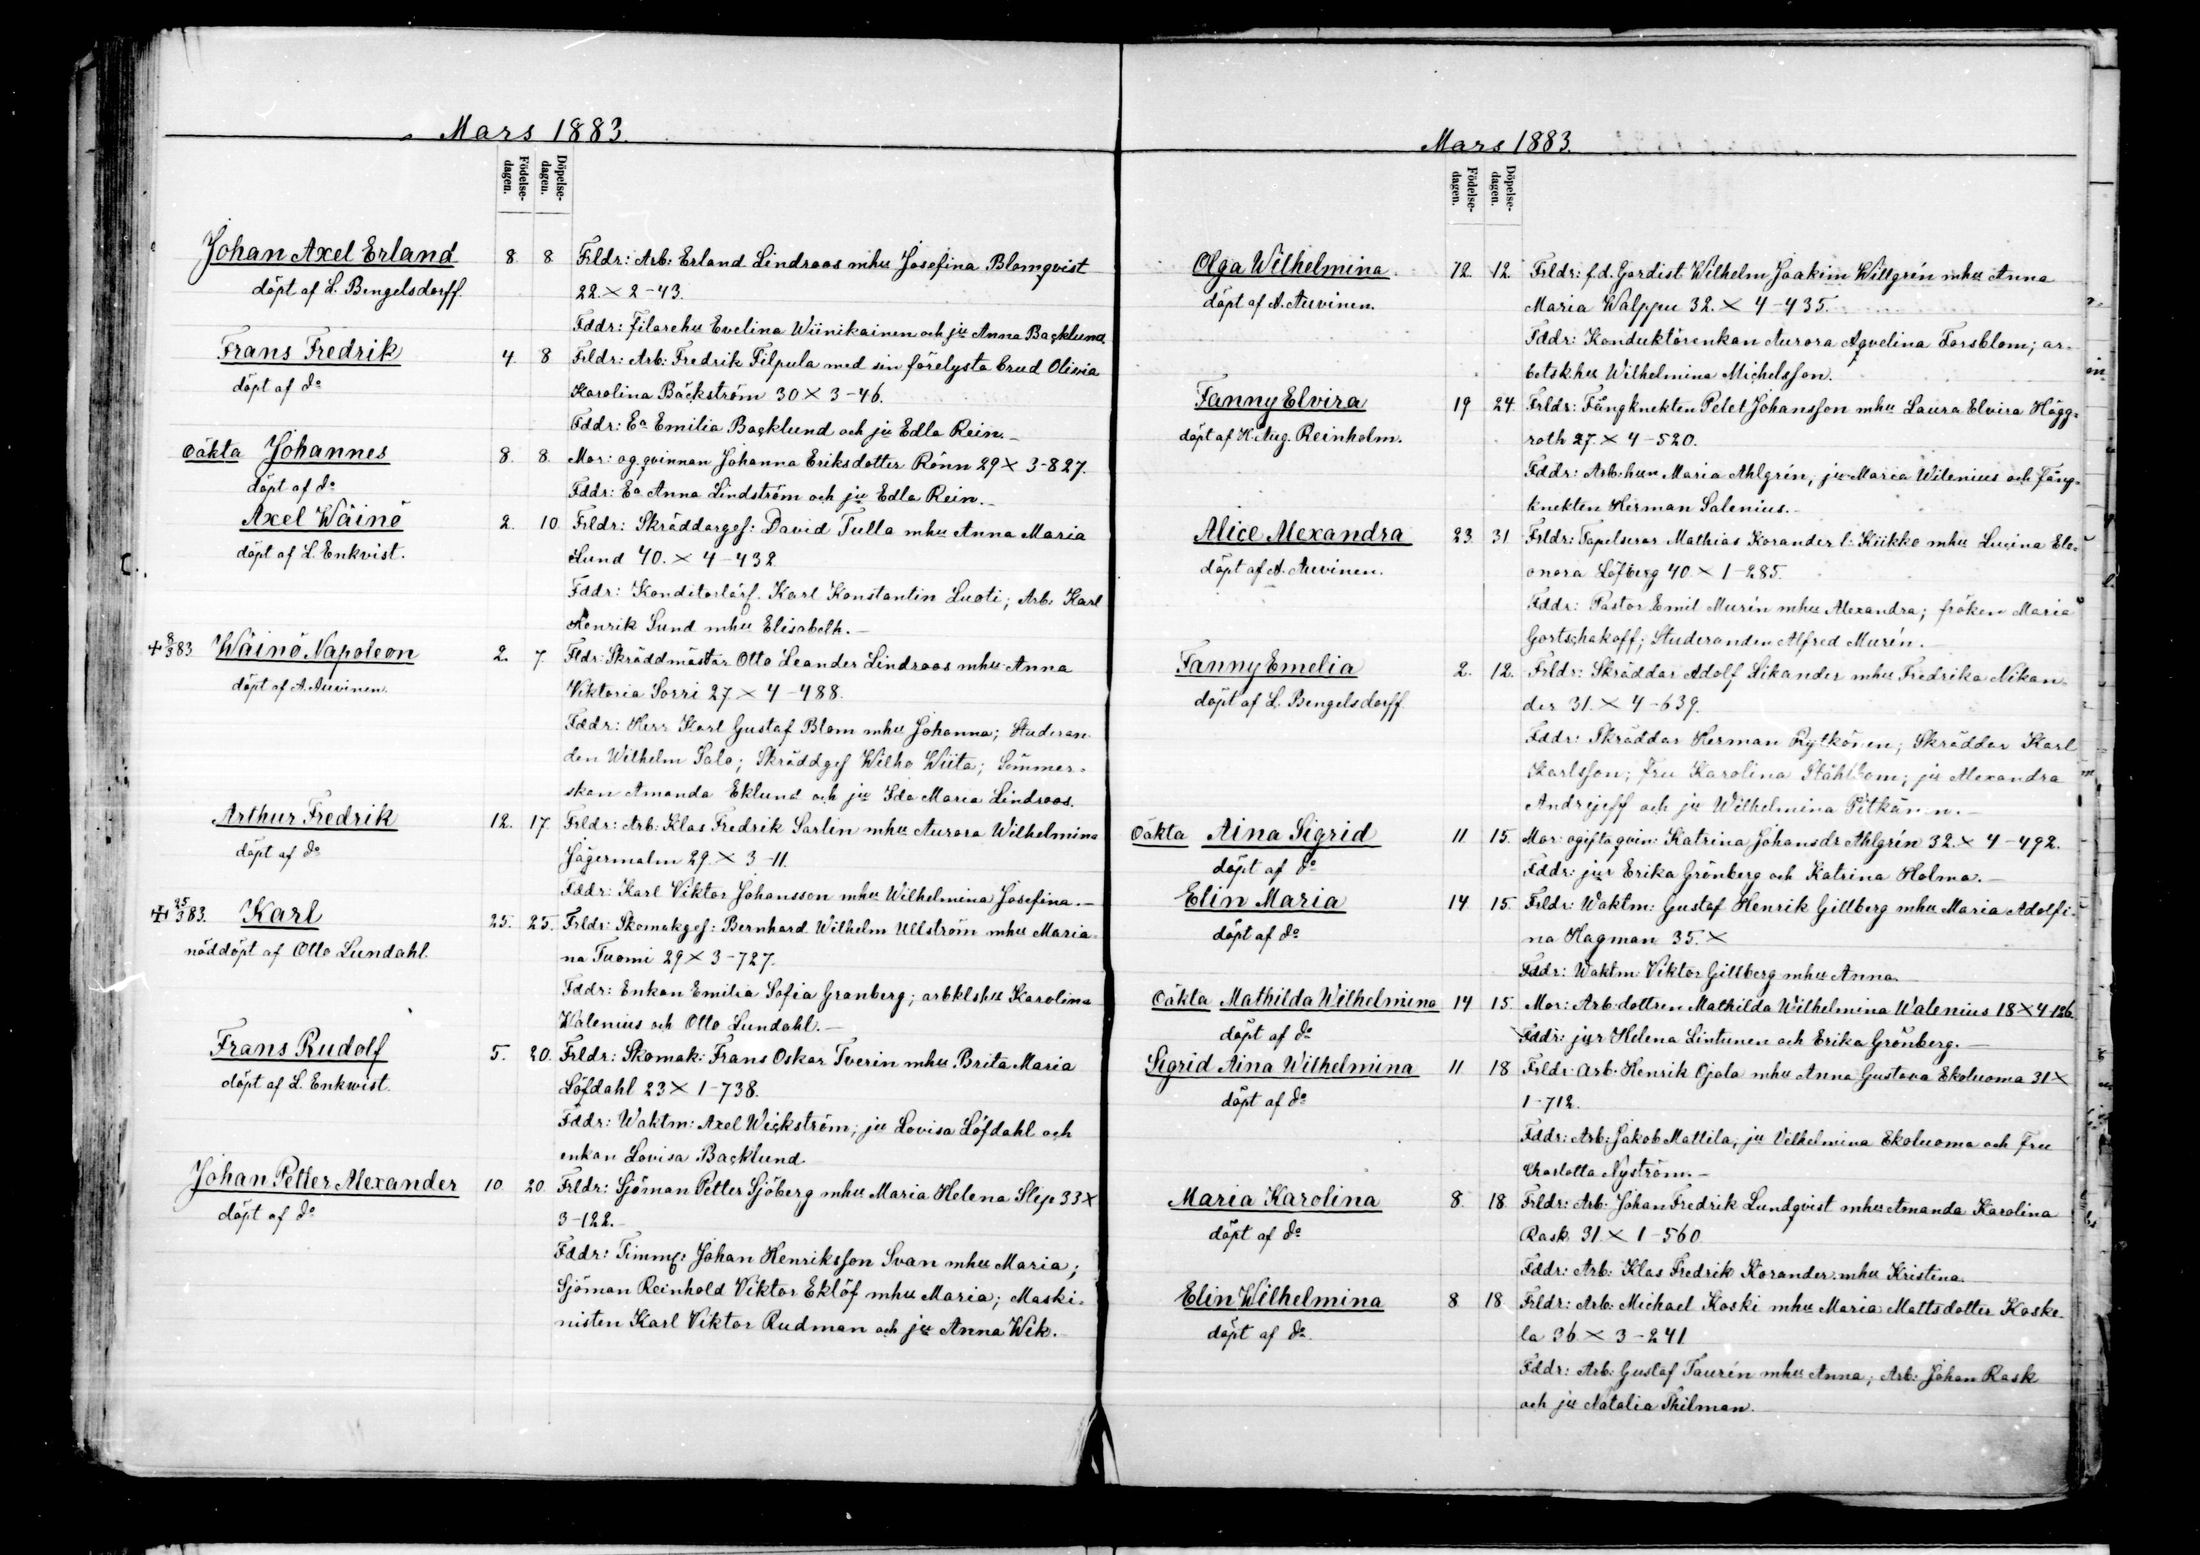 Mars 1883.
Födelse-dagen. Döpelse-dagen.
Johan Axel Erland 8. 8 Frldr: Arb: Erland Lindroos mhu Josefina Blomqvist
döpt af L. Bengelsdorff. 22. × 2-43.
Fddr: Filarehu Evelina Wiinikainen och ju Anna Backlund
Frans Fredrik 4. 8 Frldr: Arb: Fredrik Filpula med sin förelysta brud Olivia
döpt af do Karolina Bäckström 30 × 3-46.
Fddr: Ea Emilia Backlund och ju Edla Rein.
Oäkta Johannes 8. 8. Mor: og. qvinnan Johanna Eriksdotter Rönn 29 × 3-827.
döpt af do Fddr: Ea Anna Lindström och ju Edla Rein.
Axel Wäinö 2. 10. Frldr: Skräddargef: David Tulla mhu Anna Maria
döpt af L. Enkvist. Lund 40. × 4-432
Fddr: Konditorlärf. Karl Konstantin Luoti; Arb: Karl
Henrik Lund mhu Elisabeth.
+ 8/3 83 Wäinö Napoleon 2. 7. Fldr: Skräddmästar Otto Leander Lindroos mhu Anna
döpt af A. Auvinen. Viktoria Sorri 27 × 4-488.
Fddr: Herr Karl Gustaf Blom mhu Johanna; Studeran-
den Wilhelm Salo; Skräddgef Wilho Wiita; Sömmer-
skan Amanda Eklund och ju Ida Maria Lindroos.
Arthur Fredrik 12. 17 Frldr: Arb: Klas Fredrik Sarlin mhu Aurora Wilhelmina
döpt af do Jägermalm 29. × 3-11.
Fddr: Karl Viktor Johansson mhu Wilhelmina Josefina.
+ 25/3 83. Karl 25. 25. Frldr: Skomakgef: Bernhard Wilhelm Ullström mhu Maria
nöddöpt af Otto Lundahl. na Tuomi 29 × 3-727.
Fddr: Enkan Emilia Sofia Granberg; arbklshu Karolina
Walenius och Otto Lundahl.
Frans Rudolf 5. 20. Frldr: Skomak: Frans Oskar Tverin mhu Brita Maria
döpt af L. Enkvist. Löfdahl 23 × 1-738.
Fddr: Waktm: Axel Wickström; ju Lovisa Löfdahl och
enkan Lovisa Backlund.
Johan Petter Alexander 10 20. Frldr: Sjöman Petter Sjöberg mhu Maria Helena Slip 33 ×
döpt af do 3-122.
Fddr: Timmf: Johan Henriksson Svan mhu Maria;
Sjöman Reinhold Viktor Eklöf mhu Maria; Maski-
nisten Karl Viktor Rudman och ju Anna Wik.
Mars 1883.
Födelse-dagen. Döpelse-dagen.
Olga Wilhelmina 12. 12. Frldr: f.d. Gardist Wilhelm Joakim Willgrén mhu Anna
döpt af A. Auvinen. Maria Walppu 32. × 4-435.
Fddr: Konduktörenkan Aurora Aqvelina Forsblom; ar-
betsk.hu Wilhelmina Michelsson.
Fanny Elvira 19 24. Frldr: Fångknekten Petet Johansson mhu Laura Elvira Hägg-
döpt af K. Aug. Reinholm. roth 27. × 4-520.
Fddr: Arb:hun Maria Ahlgrén, ju Maria Wilenius och fång-
knekten Herman Salenius.
Alice Alexandra 23. 31 Frldr: Tapelserar Mathias Korander l: Kiikko mhu Lucina Ele-
döpt af A. Auvinen. onora Löfberg 40. × 1-285.
Fddr: Pastor Emil Murén mhu Alexandra; fröken Maria
Gortschakoff; Studeranden Alfred Murén.
Fanny Emelia 2. 12. Frldr: Skräddar Adolf Sikander mhu Fredrika Nikan-
döpt af L. Bengelsdorff. der 31. × 4-639.
Fddr: Skräddar Herman Rytkönen; Skräddar Karl
Karlsson; fru Karolina Ståhlbom; ju Alexandra
Andrejeff och ju Wilhelmina Pitkänen.
Oäkta Aina Sigrid 11 15. Mor: ogifta qvin: Katrina Johansdr Ahlgrén 32. × 4-492.
döpt af do Fddr: jur Erika Grönberg och Katrina Holma.
Elin Maria 14 15. Frldr: Waktm: Gustaf Henrik Gillberg mhu Maria Adolfi-
döpt af do na Hagman 35. ×
Fddr: Waktm: Viktor Gillberg mhu Anna
Oäkta Mathilda Wilhelmina 14 15. Mor: Arb.dottren Mathilda Wilhelmina Walenius 18 × 4-126.
döpt af do Fddr: jur Helena Lintunen och Erika Grönberg.
Sigrid Aina Wilhelmina 11 18 Frldr: Arb: Henrik Ojala mhu Anna Gustava Ekoluoma 31 ×
döpt af do 1-712.
Fddr: Arb: Jakob Mattila, ju Vilhelmina Ekoluoma och Fru
Charlotta Nyström.
Maria Karolina 8. 18. Frldr: Arb: Johan Fredrik Lundqvist mhu Amanda Karolina
döpt af do Rask 31. × 1-560
Fddr: Arb: Klas Fredrik Korander mhu Kristina.
Elin Wilhelmina 8 18. Frldr: Arb: Michael Koski mhu Maria Mattsdotter Koske-
döpt af do la 36 × 3-241
Fddr: Arb: Gustaf Taurén mhu Anna; Arb: Johan Rask
och ju Natalia Thilman.